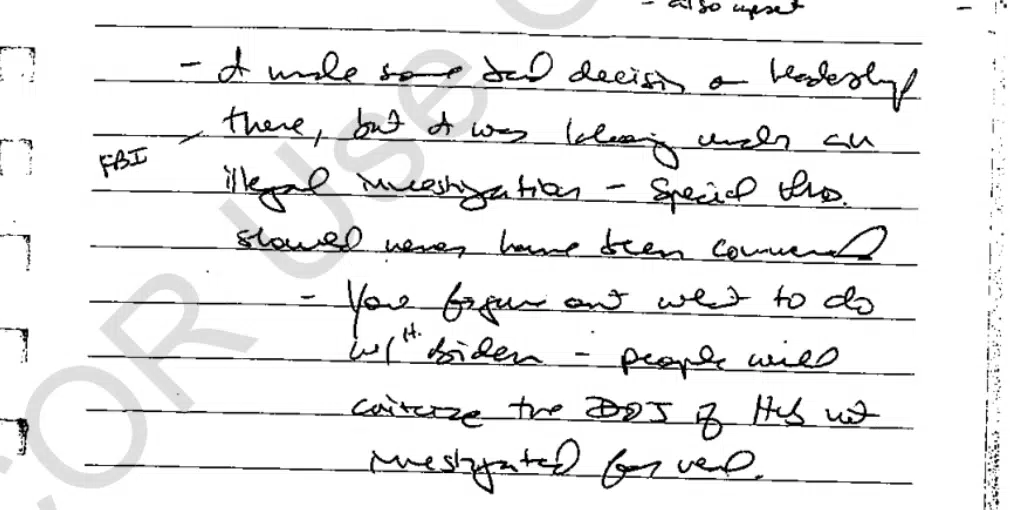 - also upset -
- I made some bad decisions on leadership
there, but I was laboring under an
FBI
illegal investigation - Special
should never have been convened
- You figure out what to do
w/ H. Biden - people will
criticize the DOJ if he's not
investigated for real.
FOR Use